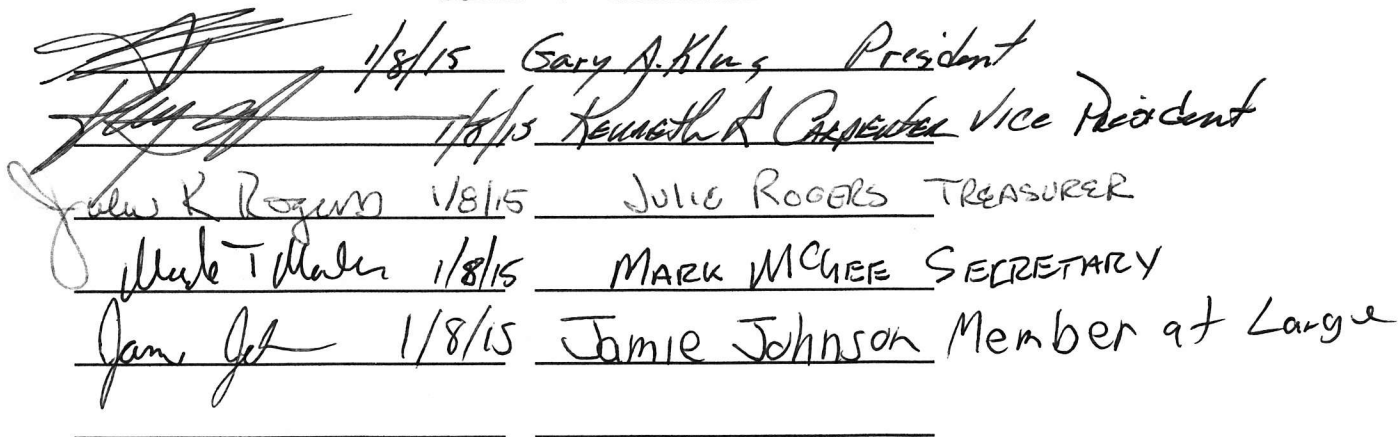 1/8/15 Gary A. Klung President
1/8/15 Kenneth R Carpenter Vice President
K Rogers 1/8/15 Julie Rogers TREASURER
Mark T 1/8/15 MARK MCGEE SECRETARY
1/8/15 Jamie Johnson Member at Large